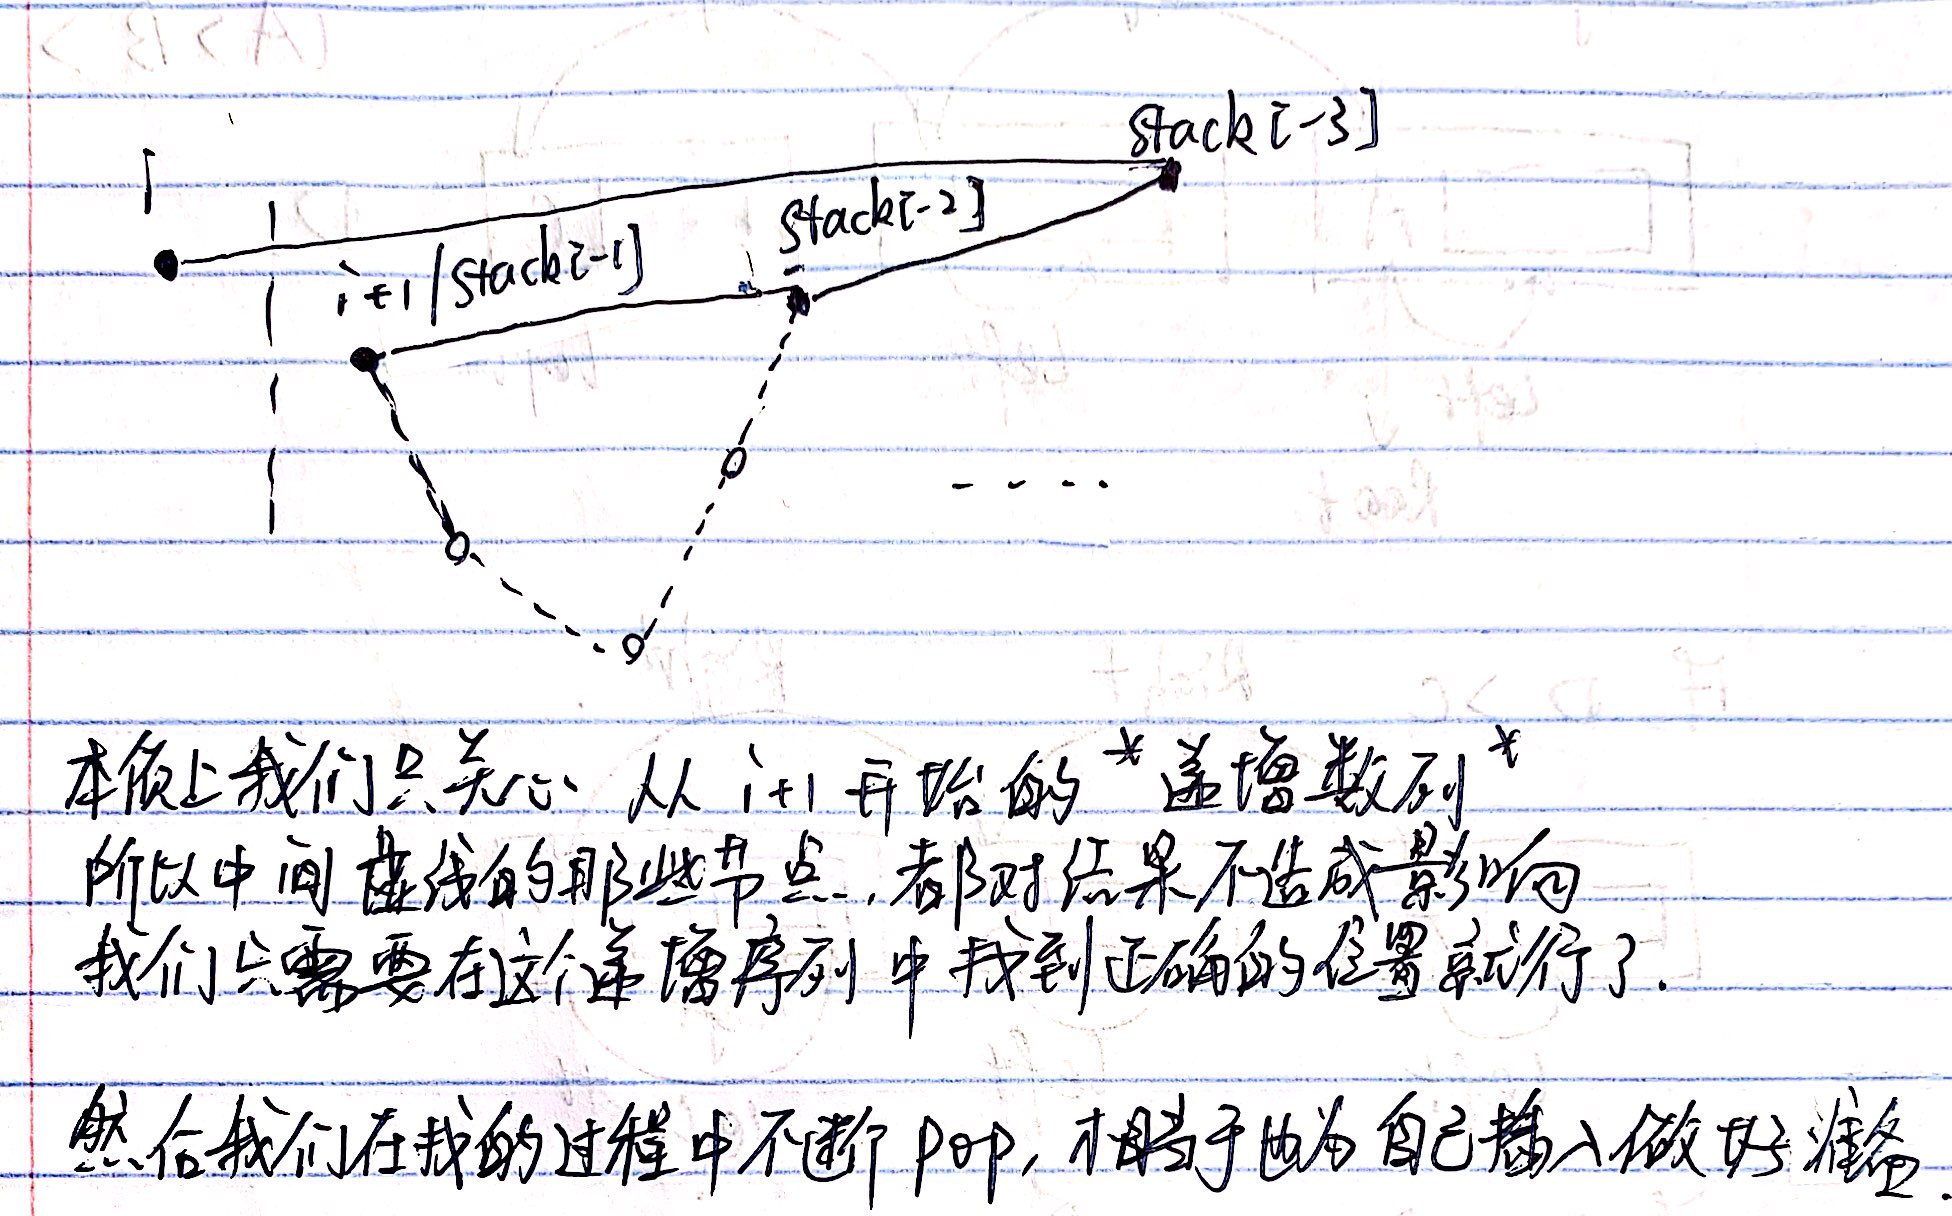 stack[-3]
i
stack[-2]
i+1/stack[-1]
本质上我们只关心 从 i+1 开始的 *递增数列*
所以中间虚线的那些节点,都对结果不造成影响
我们只需要在这个递增序列中找到正确的位置就行了.
然后我们在找的过程中不断 pop, 相当于也为自己插入做好准备.